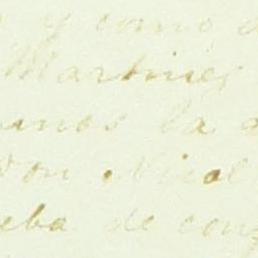 y como
Martines
anos la
Don Nicol
eba de con